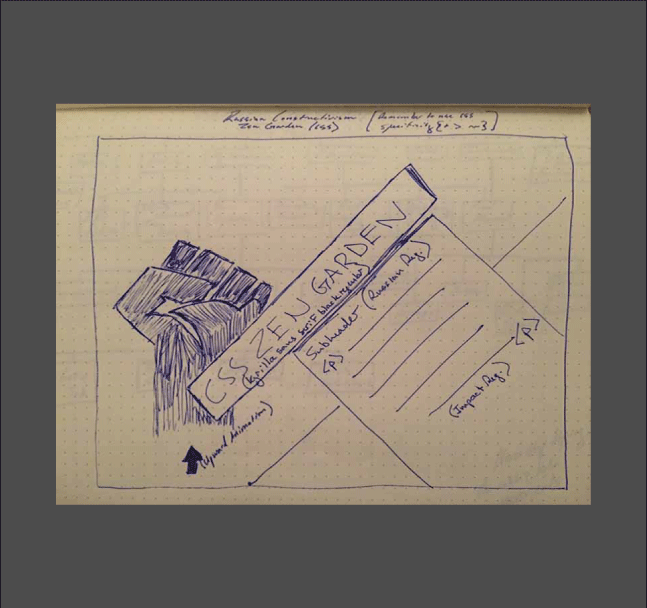 Russian Constructivism
Zen Garden (CSS)
[Remember to use CSS
specificity {+ > ~}]
CSS ZEN GARDEN
(Kyrilla sans serif black regular)
Subheader (Russian Reg.)
<p>
<p>
(Impact Reg.)
(Upward Animation)